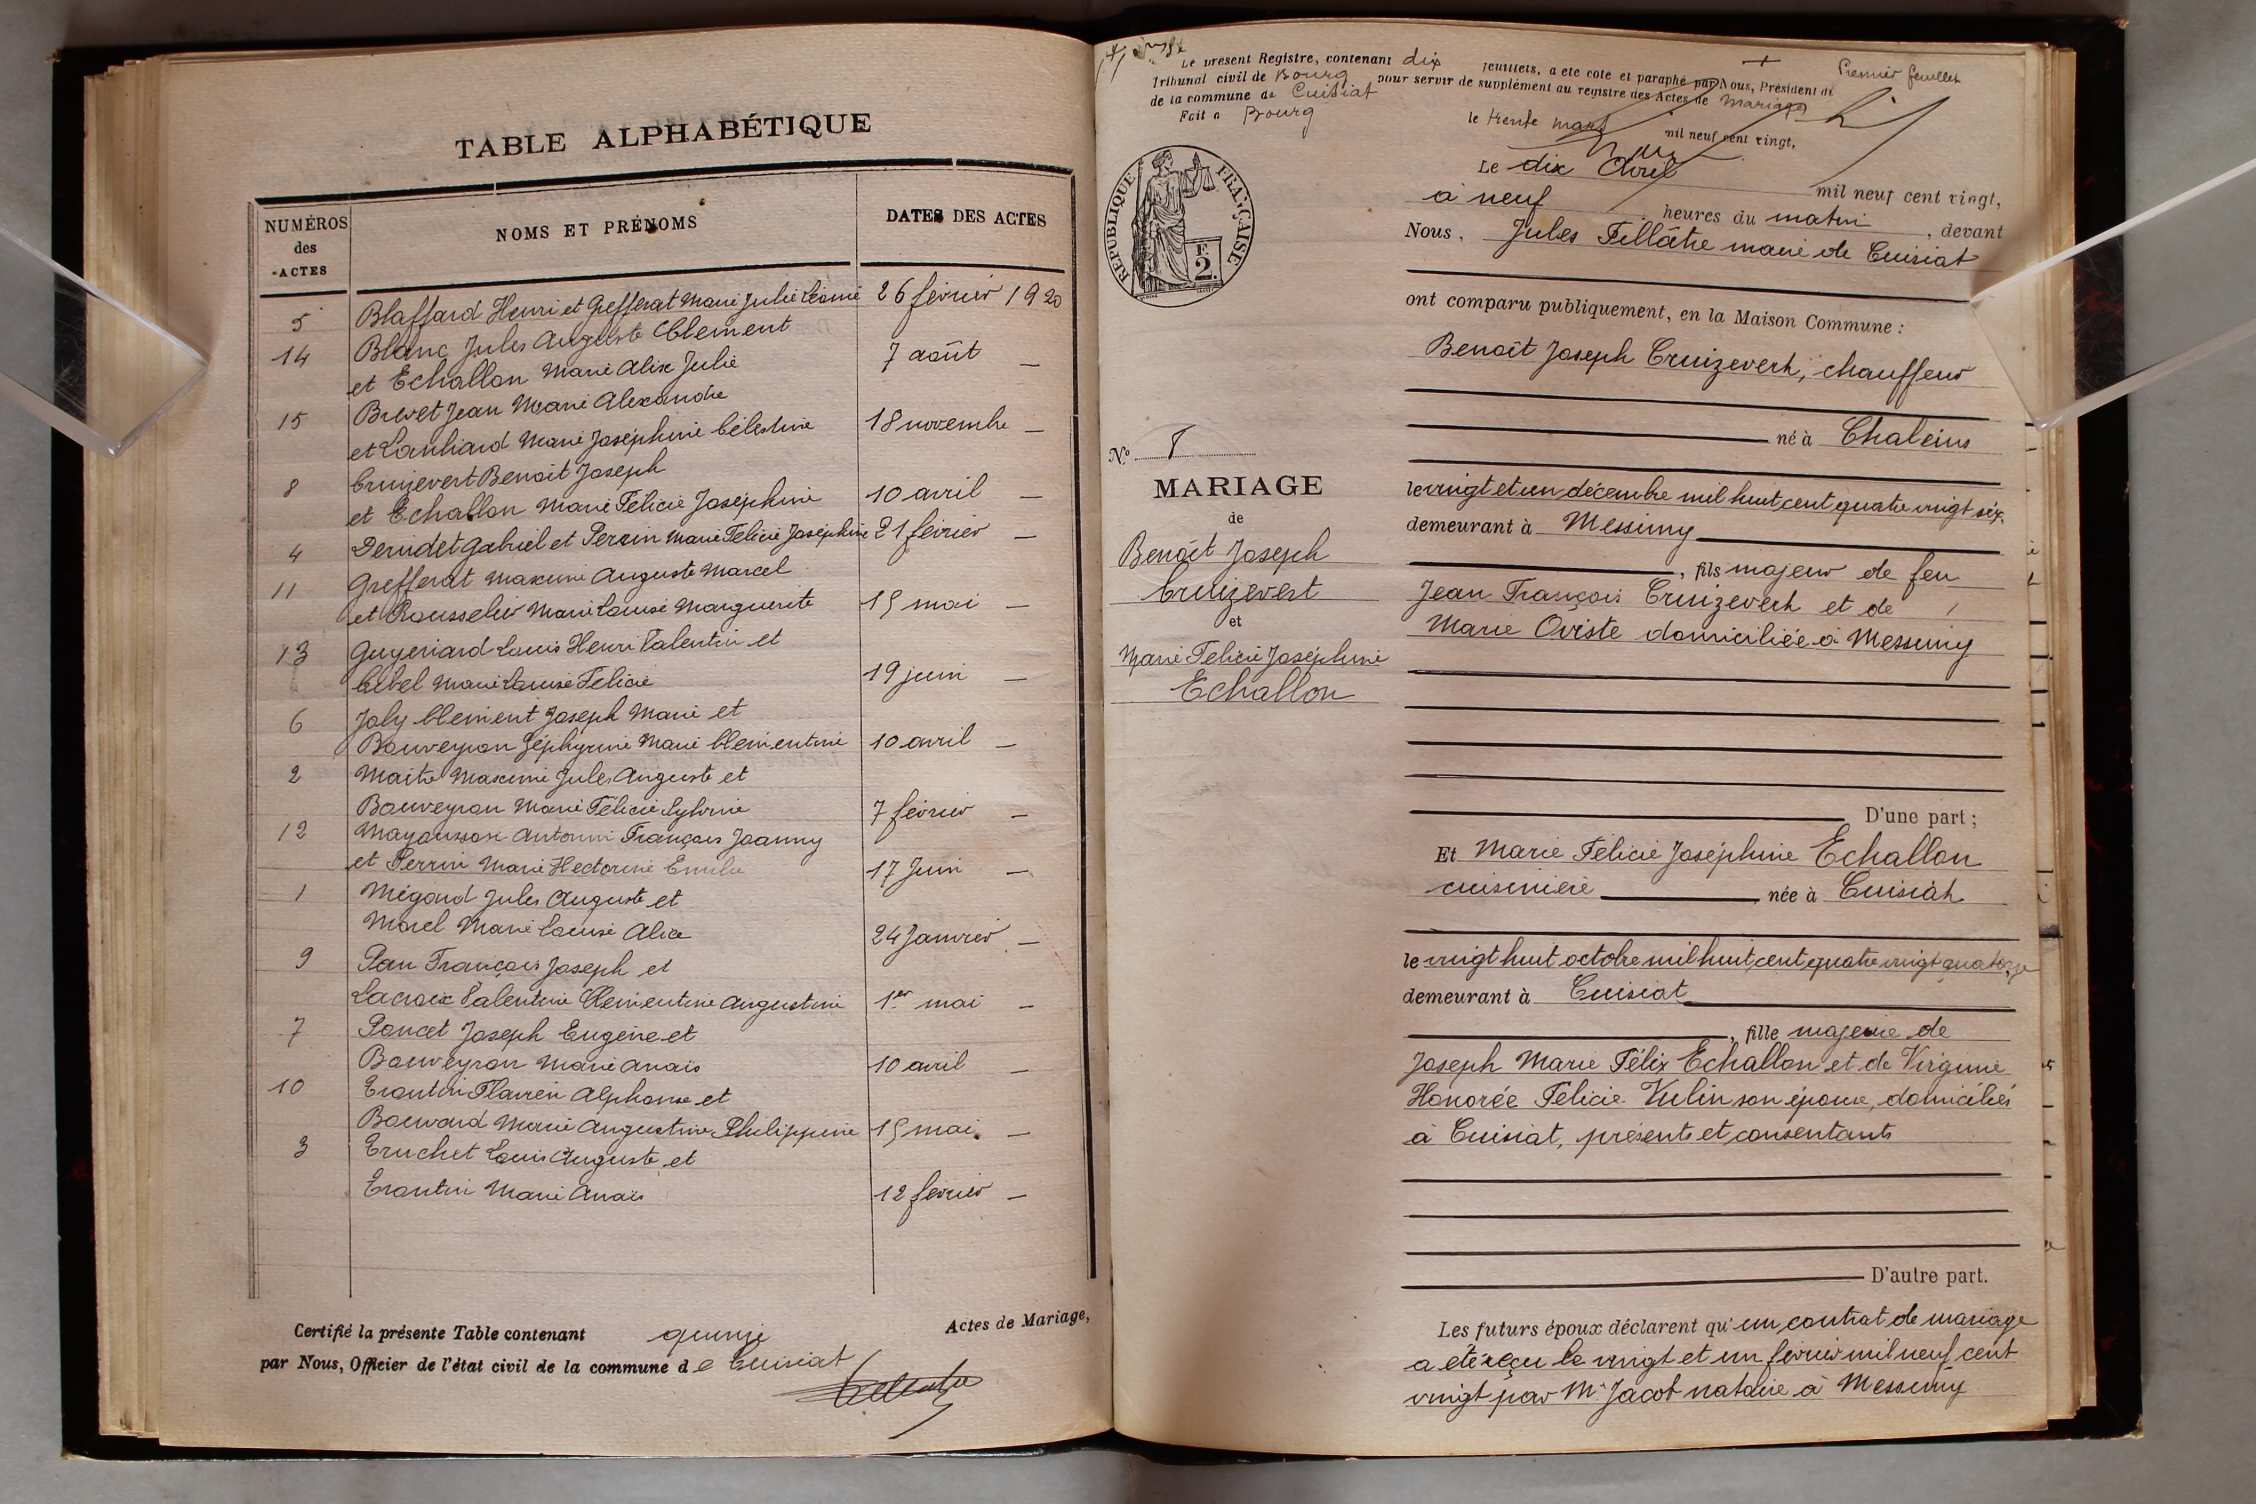 TABLE ALPHABÉTIQUE
NUMÉROS des ACTES
NOMS ET PRÉNOMS
DATES DES ACTES
5 Blaffard Henri et Grefferat Marie Julie Léonie 26 février 1920
14 Blanc Jules Auguste Clément
et Echallon Marie Alix Julie 7 août —
15 Brevet Jean Marie Alexandre
et Lanhard Marie Joséphine Célestine 18 novembre —
8 Cruizevert Benoit Joseph
et Echallon Marie Félicie Joséphine 10 avril —
4 Derudet Gabriel et Perrin Marie Félicie Joséphine 21 février —
11 Grefferat Maxime Auguste Marcel
et Rousselier Marie Louise Marguerite 15 mai —
13 Guyenard Louis Henri Valentin et
Cebel Marie Louise Félicie 19 juin —
6 Joly Clément Joseph Marie et
Bouveyron Zéphyrine Marie Clémentine 10 avril —
2 Maitre Maxime Jules Auguste et
Bouveyron Marie Félicie Sylvine 7 février —
12 Mayousson Antonin François Joanny
et Perrin Marie Hectorine Emilie 17 Juin —
1 Mégard Jules Auguste et
Morel Marie Louise Alice 24 Janvier —
9 Pan François Joseph et
Lacroix Valentine Clémentine Augustine 1er mai —
7 Poncet Joseph Eugène et
Bouveyron Marie Anaïs 10 avril —
10 Trontin Flavien Alphonse et
Bouvard Marie Augustine Philippine 15 mai —
3 Truchet Louis Auguste et
Trontin Marie Anaïs 12 février —
Certifié la présente Table contenant quinze Actes de Mariage,
par Nous, Officier de l'état civil de la commune de Cuisiat
Premier feuillet
Le présent Registre, contenant dix feuillets, a été coté et paraphé par Nous, Président du
Tribunal civil de Bourg pour servir de supplément au registre des Actes de Mariages
de la commune de Cuisiat
Fait à Bourg le trente mars mil neuf cent vingt,
RÉPUBLIQUE FRANÇAISE
F.
2.
Le dix Avril mil neuf cent vingt,
à neuf heures du matin, devant
Nous, Jules Tillâtre maire de Cuisiat
ont comparu publiquement, en la Maison Commune :
Benoît Joseph Cruizevert, chauffeur
né à Chaleins
le vingt et un décembre mil huit cent quatre vingt six
demeurant à Messimy
, fils majeur de feu
Jean François Cruizevert et de
Marie Oviste domiciliée à Messimy
D'une part ;
No 8
MARIAGE
de
Benoît Joseph
Cruizevert
et
Marie Félicie Joséphine
Echallon
Et Marie Félicie Joséphine Echallon
cuisinière née à Cuisiat
le vingt huit octobre mil huit cent quatre vingt quatorze
demeurant à Cuisiat
, fille majeure de
Joseph Marie Félix Echallon et de Virginie
Honorée Félicie Vulin son épouse, domiciliés
à Cuisiat, présents et consentants
D'autre part.
Les futurs époux déclarent qu'un contrat de mariage
a été reçu le vingt et un février mil neuf cent
vingt par Me Jacob notaire à Messimy